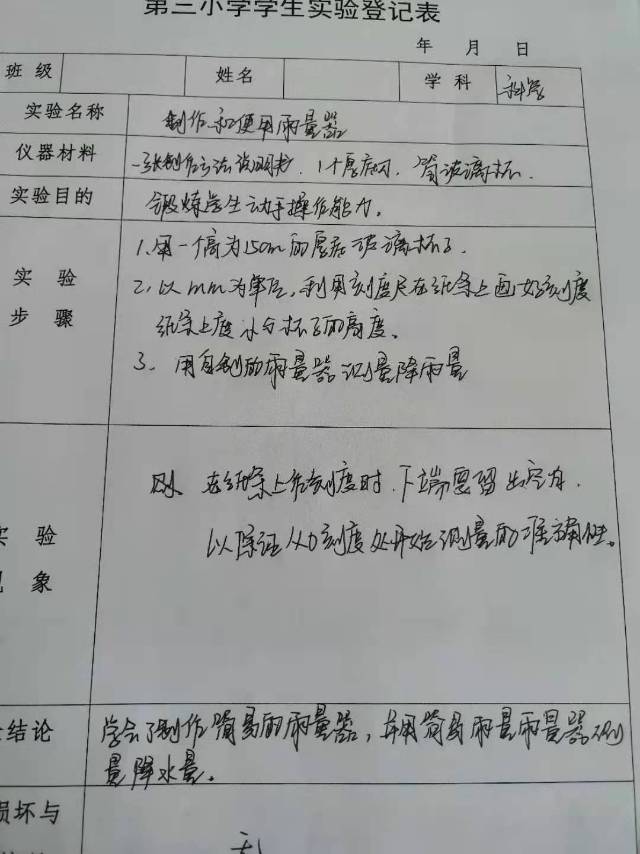 第三小学学生实验登记表
年 月 日
班级 姓名 学科 科学
实验名称 制作和使用雨量器
仪器材料 一张制作方法说明书，1个厚底的，筒玻璃杯.
实验目的 锻炼学生动手操作能力。
1.用一个高为15cm的厚底玻璃杯子.
实验 2.以mm为单位，利用刻度尺在纸条上画好刻度
步骤 纸条上度 杯子的高度、
3、用自制的雨量器测量降雨量
在纸条上作刻度时，下端要留出空白，
实验 以保证从0刻度处开始测量的准确性。
现象
结论 学会了制作简易的雨量器，并用简易雨量雨量器测
量降水量。
损坏与
无